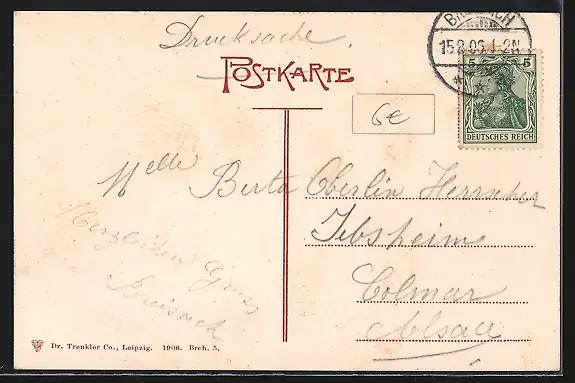 Drucksache.
BREISACH
15.8.06.1-2N
POSTKARTE
5 5
DEUTSCHES REICH
6€
Melle Berta Oberlin Herrscher
Jebsheim
Colmar
Alsace
Herzlichen Gruss
Breisach
Dr. Trenkler Co., Leipzig. 1906. Brch. 5.